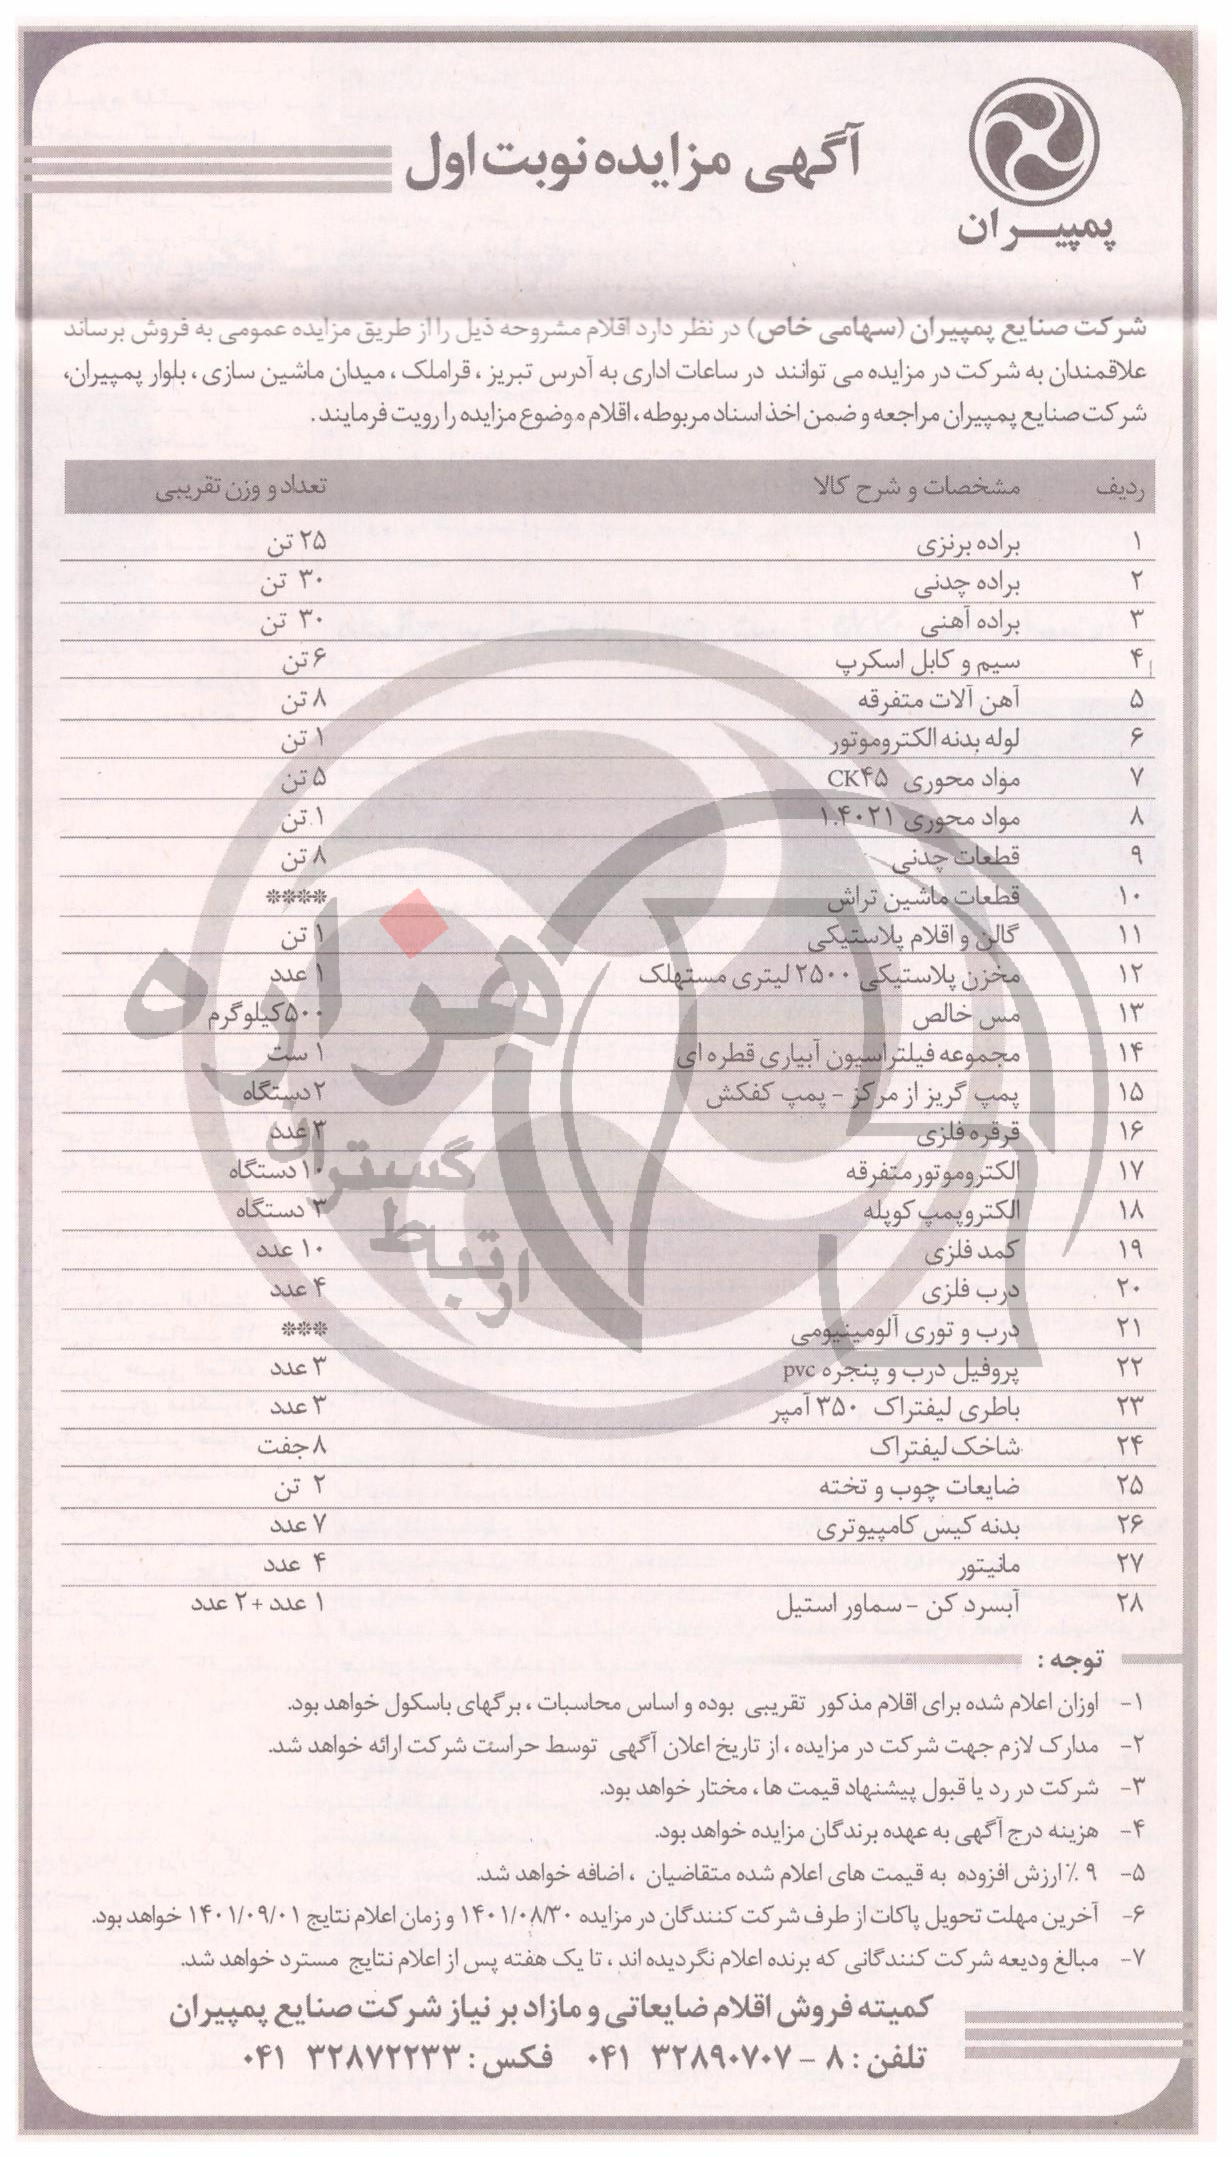 پمپیران
آگهی مزایده نوبت اول
شرکت صنایع پمپیران (سهامی خاص) در نظر دارد اقلام مشروحه ذیل را از طریق مزایده عمومی به فروش برساند
علاقمندان به شرکت در مزایده می توانند در ساعات اداری به آدرس تبریز ، قراملک ، میدان ماشین سازی ، بلوار پمپیران،
شرکت صنایع پمپیران مراجعه و ضمن اخذ اسناد مربوطه ، اقلام موضوع مزایده را رویت فرمایند .
ردیف مشخصات و شرح کالا تعداد و وزن تقریبی
۱ براده برنزی ۲۵ تن
۲ براده چدنی ۳۰ تن
۳ براده آهنی ۳۰ تن
۴ سیم و کابل اسکرپ ۶ تن
۵ آهن آلات متفرقه ۸ تن
۶ لوله بدنه الکتروموتور ۱ تن
۷ مواد محوری CK۴۵ ۵ تن
۸ مواد محوری ۱.۴۰۲۱ ۱ تن
۹ قطعات چدنی ۸ تن
۱۰ قطعات ماشین تراش ****
۱۱ گالن و اقلام پلاستیکی ۱ تن
۱۲ مخزن پلاستیکی ۲۵۰۰ لیتری مستهلک ۱ عدد
۱۳ مس خالص ۵۰۰ کیلوگرم
۱۴ مجموعه فیلتراسیون آبیاری قطره ای ۱ ست
۱۵ پمپ گریز از مرکز - پمپ کفکش ۲ دستگاه
۱۶ قرقره فلزی ۳ عدد
۱۷ الکتروموتور متفرقه ۱۰ دستگاه
۱۸ الکتروپمپ کوپله ۳ دستگاه
۱۹ کمد فلزی ۱۰ عدد
۲۰ درب فلزی ۴ عدد
۲۱ درب و توری آلومینیومی ***
۲۲ پروفیل درب و پنجره pvc ۳ عدد
۲۳ باطری لیفتراک ۳۵۰ آمپر ۳ عدد
۲۴ شاخک لیفتراک ۸ جفت
۲۵ ضایعات چوب و تخته ۲ تن
۲۶ بدنه کیس کامپیوتری ۷ عدد
۲۷ مانیتور ۴ عدد
۲۸ آبسرد کن - سماور استیل ۱ عدد + ۲ عدد
هزاره
گستران
ارتباط
توجه :
۱- اوزان اعلام شده برای اقلام مذکور تقریبی بوده و اساس محاسبات ، برگهای باسکول خواهد بود.
۲- مدارک لازم جهت شرکت در مزایده ، از تاریخ اعلان آگهی توسط حراست شرکت ارائه خواهد شد.
۳- شرکت در رد یا قبول پیشنهاد قیمت ها ، مختار خواهد بود.
۴- هزینه درج آگهی به عهده برندگان مزایده خواهد بود.
۵- ۹ ٪ ارزش افزوده به قیمت های اعلام شده متقاضیان ، اضافه خواهد شد.
۶- آخرین مهلت تحویل پاکات از طرف شرکت کنندگان در مزایده ۱۴۰۱/۰۸/۳۰ و زمان اعلام نتایج ۱۴۰۱/۰۹/۰۱ خواهد بود.
۷- مبالغ ودیعه شرکت کنندگانی که برنده اعلام نگردیده اند ، تا یک هفته پس از اعلام نتایج مسترد خواهد شد.
کمیته فروش اقلام ضایعاتی و مازاد بر نیاز شرکت صنایع پمپیران
تلفن : ۸ - ۳۲۸۹۰۷۰۷ ۰۴۱ فکس : ۳۲۸۷۲۲۳۳ ۰۴۱